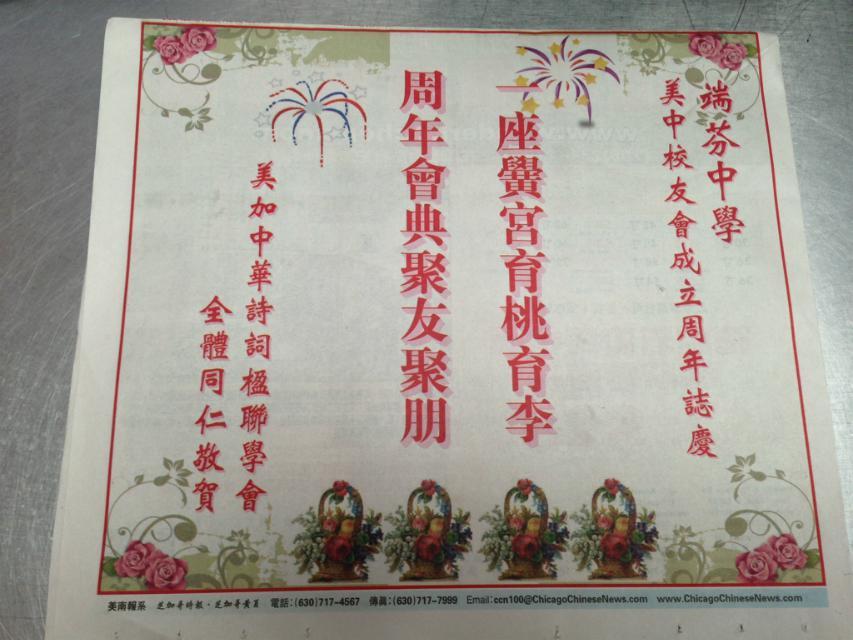 端芬中學
美中校友會成立周年誌慶
一座黌宮育桃育李
周年會典聚友聚朋
美加中華詩詞楹聯學會
全體同仁敬賀
美南報系 芝加哥時報・芝加哥黃頁 電話:(630)717-4567 傳真:(630)717-7999 Email:ccn100@ChicagoChineseNews.com www.ChicagoChineseNews.com